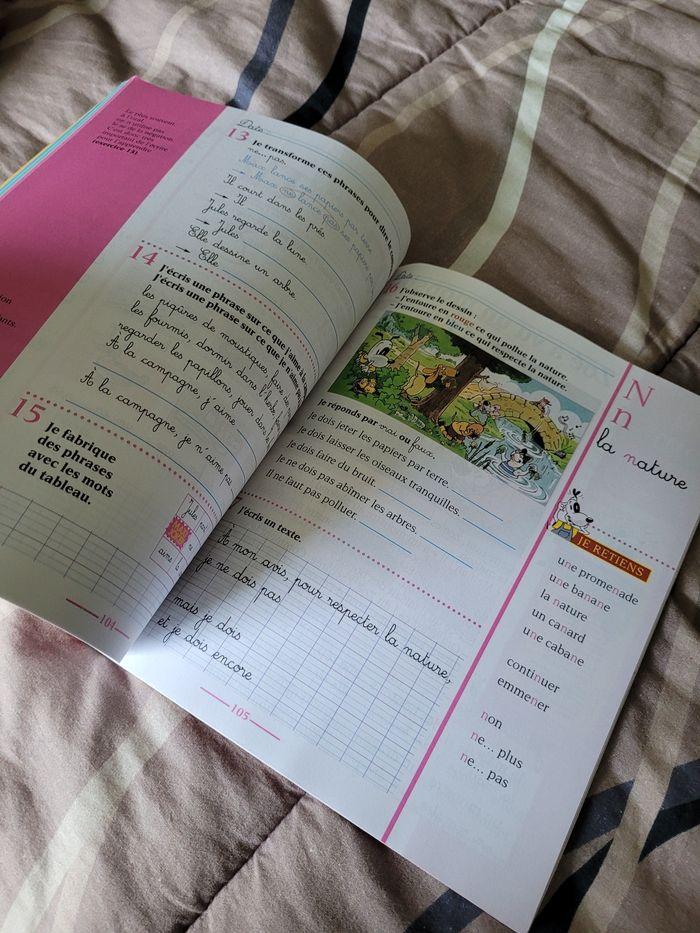 Le plus souvent,
à l'oral,
on n'utilise pas
le ne de la négation.
C'est donc très
important de l'écrire
pour l'apprendre
(exercice 13)
ion
ants.
Date
13 Je transforme ces phrases pour dire le
ne... pas.
Max lance ses papiers par terre
→ Max ne lance pas ses papiers par
Il court dans les prés.
→ Il
Jules regarde la lune
→ Jules
Elle dessine un arbre
→ Elle
14 J'écris une phrase sur ce que j'aime
J'écris une phrase sur ce que je n'aime pas
les piqûres de moustiques, faire de
les fourmis, dormir dans l'herbe
regarder les papillons, jouer dans
À la campagne, j'aime
À la campagne, je n'aime pas
15 Je fabrique
des phrases
avec les mots
du tableau.
Jules
ne
aime
104
Date
16 J'observe le dessin :
- J'entoure en rouge ce qui pollue la nature.
- J'entoure en bleu ce qui respecte la nature.
Je réponds par vrai ou faux.
Je dois jeter les papiers par terre.
Je dois laisser les oiseaux tranquilles.
Je dois faire du bruit.
Je ne dois pas abîmer les arbres.
Il ne faut pas polluer.
J'écris un texte.
À mon avis, pour respecter la nature,
je ne dois pas
mais je dois
et je dois encore
105
N
n
la nature
JE RETIENS
une promenade
une banane
la nature
un canard
une cabane
continuer
emmener
non
ne... plus
ne... pas